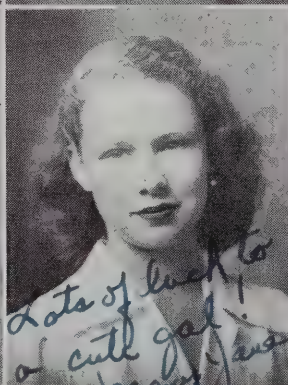 Lots of luck to
a cute gal!
Jane